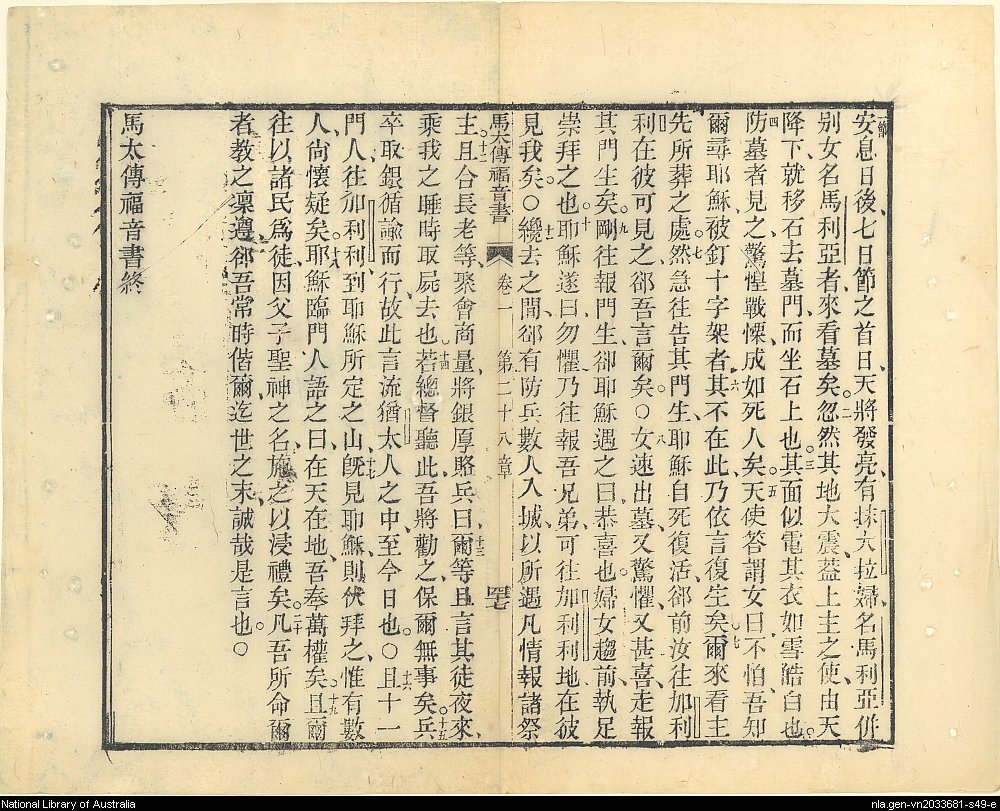 一節
安息日後七日節之首日天將發亮有抹大拉婦名馬利亞併
別女名馬利亞者來看墓矣忽然其地大震葢上主之使由天
降下就移石去墓門而坐石上也其面似電其衣如雪皓白也
防墓者見之驚惶戰慄成如死人矣天使答謂女曰不怕吾知
爾尋耶穌被釘十字架者其不在此乃依言復生矣爾來看主
先所葬之處然急往告其門生耶穌自死復活郤前汝往加利
利在彼可見之郤吾言爾矣○女速出墓又驚懼又甚喜走報
其門生矣剛往報門生卻耶穌遇之曰恭喜也婦女趨前執足
崇拜之也耶穌遂曰勿懼乃往報吾兄弟可往加利利地在彼
見我矣○纔去之間郤有防兵數人入城以所遇凡情報諸祭
馬太傳福音書 卷一 第二十八章
主且合長老等聚會商量將銀厚賂兵曰爾等且言其徒夜來
乘我之睡時取屍去也若總督聽此吾將勸之保爾無事矣兵
卒取銀循諭而行故此言流猶太人之中至今日也○且十一
門人往加利利到耶穌所定之山旣見耶穌則伏拜之惟有數
人尙懷疑矣耶穌臨門人語之曰在天在地吾奉萬權矣且爾
往以諸民爲徒因父子聖神之名施之以浸禮矣凡吾所命爾
者教之凛遵郤吾常時偕爾迄世之末誠哉是言也○
馬太傳福音書終
National Library of Australia
nla.gen-vn2033681-s49-e